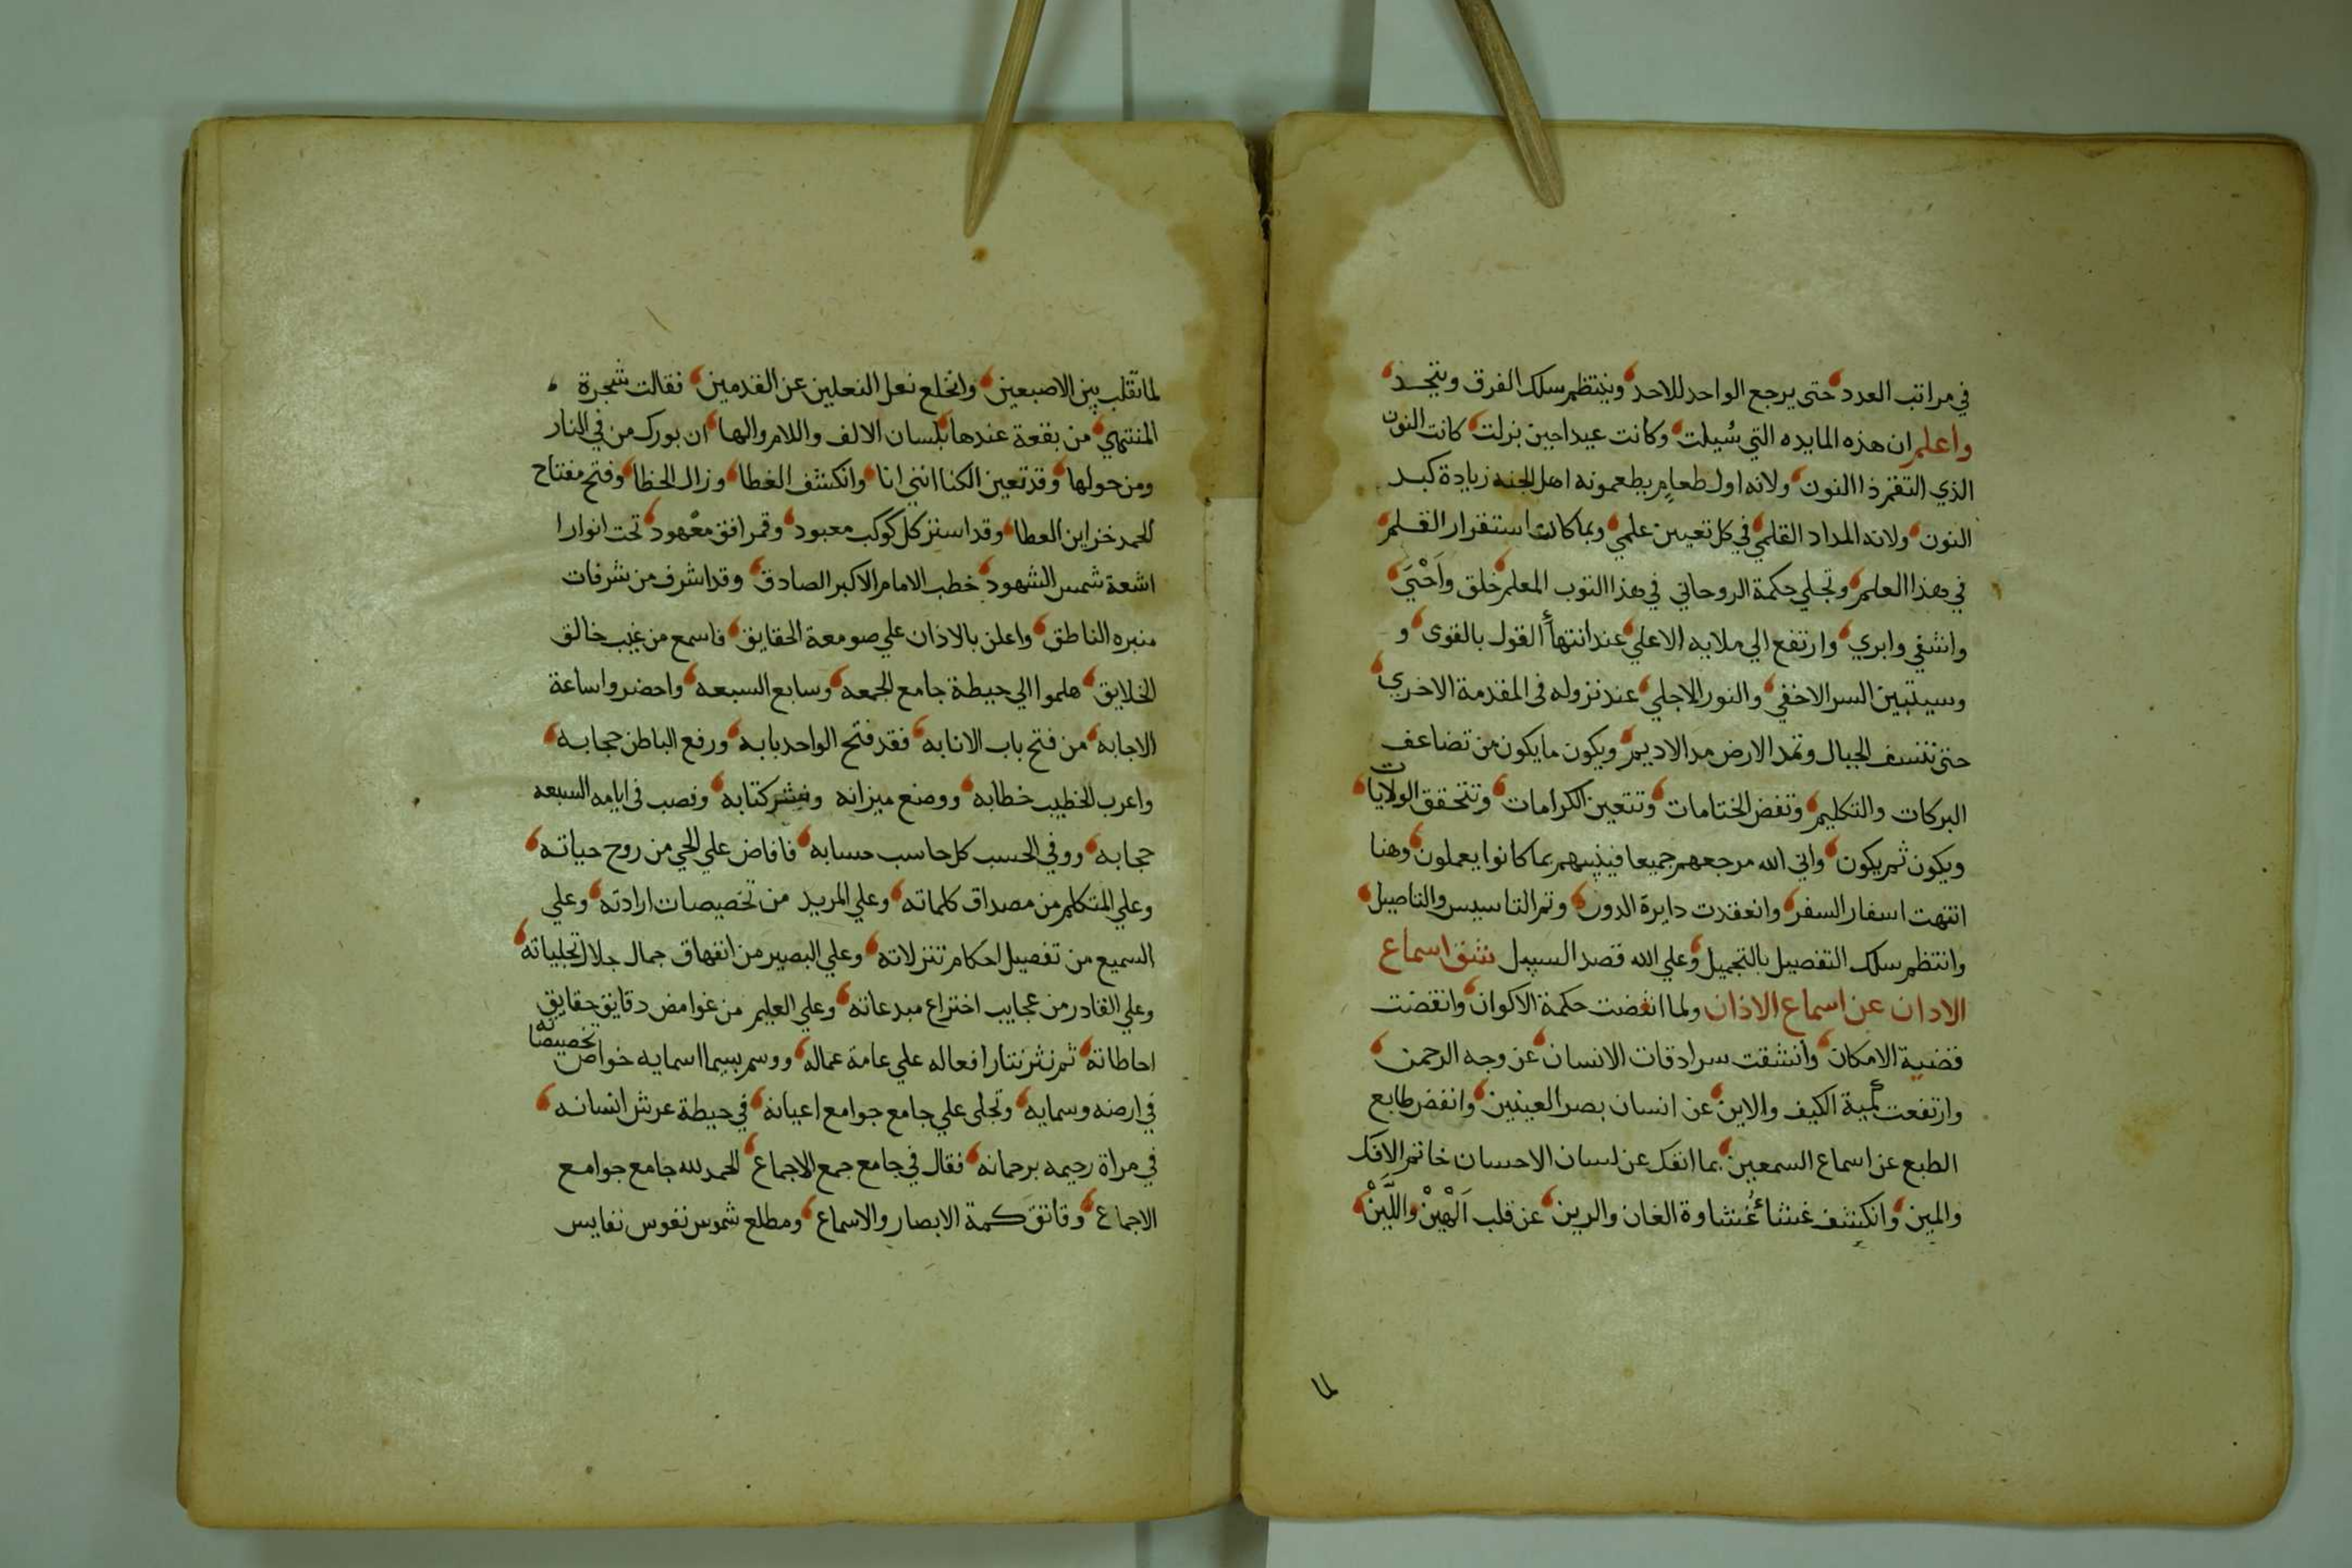 في مراتب العدد حتى يرجع الواحد للاحد وينتظم سلك الفرق ويتحد
واعلم ان هذه المايده التي سُيلت وكانت عيدا حين نزلت كانت النون
الذي التقم ذا النون ولانه اول طعام يطعمونه اهل الجنه زيادة كبد
النون ولانه المداد القلمي في كل تعيين علمي وبما كان استقرار القلم
في هذا العلم وتجلي حكمة الروحاني في هذا التوب المعلم خلق وَاَحْيَي
واشفي وابري وارتفع الي ملايه الاعلي عند انتهاأ القول بالقوي و
وسيتبين السر الاخفي والنور الاجلي عند نزوله فى المقدمة الاخري
حتى تنسف الجبال وتمد الارض مد الاديم ويكون ما يكون من تضاعف
البركات والتكليم وتفض الختامات وتتعين الكرامات وتتحقق الولايات
ويكون ثم يكون والي الله مرجعهم جميعا فينبيهم بما كانوا يعملون وهنا
انتهت اسفار السفر وانعقدت دايرة الدور وتم التاسيس والتاصيل
وانتظم سلك التفصيل بالتجميل وعلي الله قصد السبيل شنق اسماع
الاذان عن اسماع الاذان ولما انقضت حكمة الاكوان وانقضت
قضية الامكان وانشقت سرادقات الانسان عن وجه الرحمن
وارتفعت كمية الكيف والاين عن انسان بصر العينين وانفض طابع
الطبع عن اسماع السمعين بما انفك عن لسان الاحسان خاتم الافك
والمين وانكشف غشاء غُشاوة الغان والرين عن قلب اَلْهَيْنْ واللَّيَنْ
لما
لما تقلب بين الاصبعين وانخلع نعل النعلين عن القدمين فقالت شجرة
المنتهي من بقعة عندها بلسان الالف واللام والها ان بورك من في النار
ومن حولها وقد تعين الكنا انني انا وانكشف الغطا وزال الخطا وفتح مفتاح
الحمد خزاين العطا وقد استنز كل كوكب معبود وقمر افق معْهود تحت انوارا
اشعة شمس الشهود خطب الامام الاكبر الصادق وقد اشرف من شرفات
منبره الناطق واعلن بالاذان علي صومعة الحقايق فاسمع من غيب خالق
الخلايق هلموا الي حيطة جامع الجمعه وسابع السبعه واحضروا ساعة
الاجابه من فتح باب الانابه فقد فتح الواحد بابه ورفع الباطن حجابه
واعرب الخطيب خطابه ووضع ميزانه ونشر كتابه ونصب فى ايامه السبعه
حجابه ووفي الحسب كل حاسب حسابه فافاض علي الحي من روح حياته
وعلي المتكلم من مصداق كلماته وعلي المريد من تخصيصات ارادته وعلي
السميع من تفصيل احكام تنزلاته وعلي البصير من انفهاق جمال جلال تجلياته
وعلي القادر من عجايب اختراع مبدعاته وعلي العليم من غوامض دقايق حقايق
احاطاته ثم نثر نثار افعاله علي عامة عماله ووسم بسيما اسمايه خواص تخصيصاته
في ارضه وسمايه وتجلى علي جامع جوامع اعيانه في حيطة عرش انسانه
في مراة رحيمه برحمانه فقال في جامع جمع الاجماع الحمد لله جامع جوامع
الاجماع وفاتق كمة الابصار والاسماع ومطلع شموس نفوس نفايس